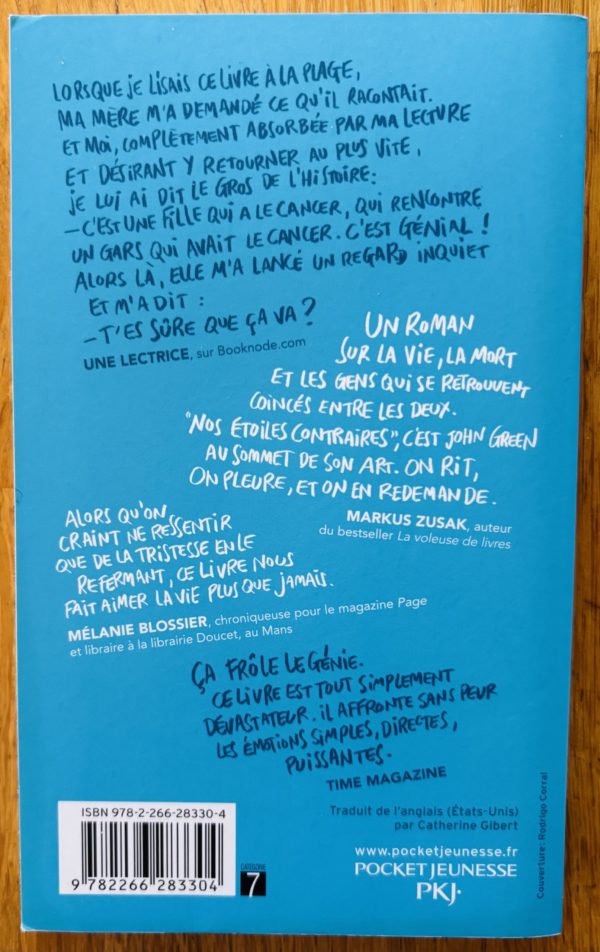 LORSQUE JE LISAIS CE LIVRE À LA PLAGE,
MA MÈRE M'A DEMANDÉ CE QU'IL RACONTAIT.
ET MOI, COMPLÈTEMENT ABSORBÉE PAR MA LECTURE
ET DÉSIRANT Y RETOURNER AU PLUS VITE,
JE LUI AI DIT LE GROS DE L'HISTOIRE:
– C'EST UNE FILLE QUI A LE CANCER, QUI RENCONTRE
UN GARS QUI AVAIT LE CANCER. C'EST GÉNIAL !
ALORS LÀ, ELLE M'A LANCÉ UN REGARD INQUIET
ET M'A DIT :
– T'ES SÛRE QUE ÇA VA ?
UNE LECTRICE, sur Booknode.com
UN ROMAN
SUR LA VIE, LA MORT
ET LES GENS QUI SE RETROUVENT
COINCÉS ENTRE LES DEUX.
"NOS ÉTOILES CONTRAIRES", C'EST JOHN GREEN
AU SOMMET DE SON ART. ON RIT,
ON PLEURE, ET ON EN REDEMANDE.
MARKUS ZUSAK, auteur
du bestseller La voleuse de livres
ALORS QU'ON
CRAINT NE RESSENTIR
QUE DE LA TRISTESSE EN LE
REFERMANT, CE LIVRE NOUS
FAIT AIMER LA VIE PLUS QUE JAMAIS.
MÉLANIE BLOSSIER, chroniqueuse pour le magazine Page
et libraire à la librairie Doucet, au Mans
ÇA FRÔLE LE GÉNIE.
CE LIVRE EST TOUT SIMPLEMENT
DÉVASTATEUR. IL AFFRONTE SANS PEUR
LES ÉMOTIONS SIMPLES, DIRECTES,
PUISSANTES.
TIME MAGAZINE
ISBN 978-2-266-28330-4
9 782266 283304
CATÉGORIE
7
Traduit de l'anglais (États-Unis)
par Catherine Gibert
www.pocketjeunesse.fr
POCKET JEUNESSE
PKJ·
Couverture : Rodrigo Corral